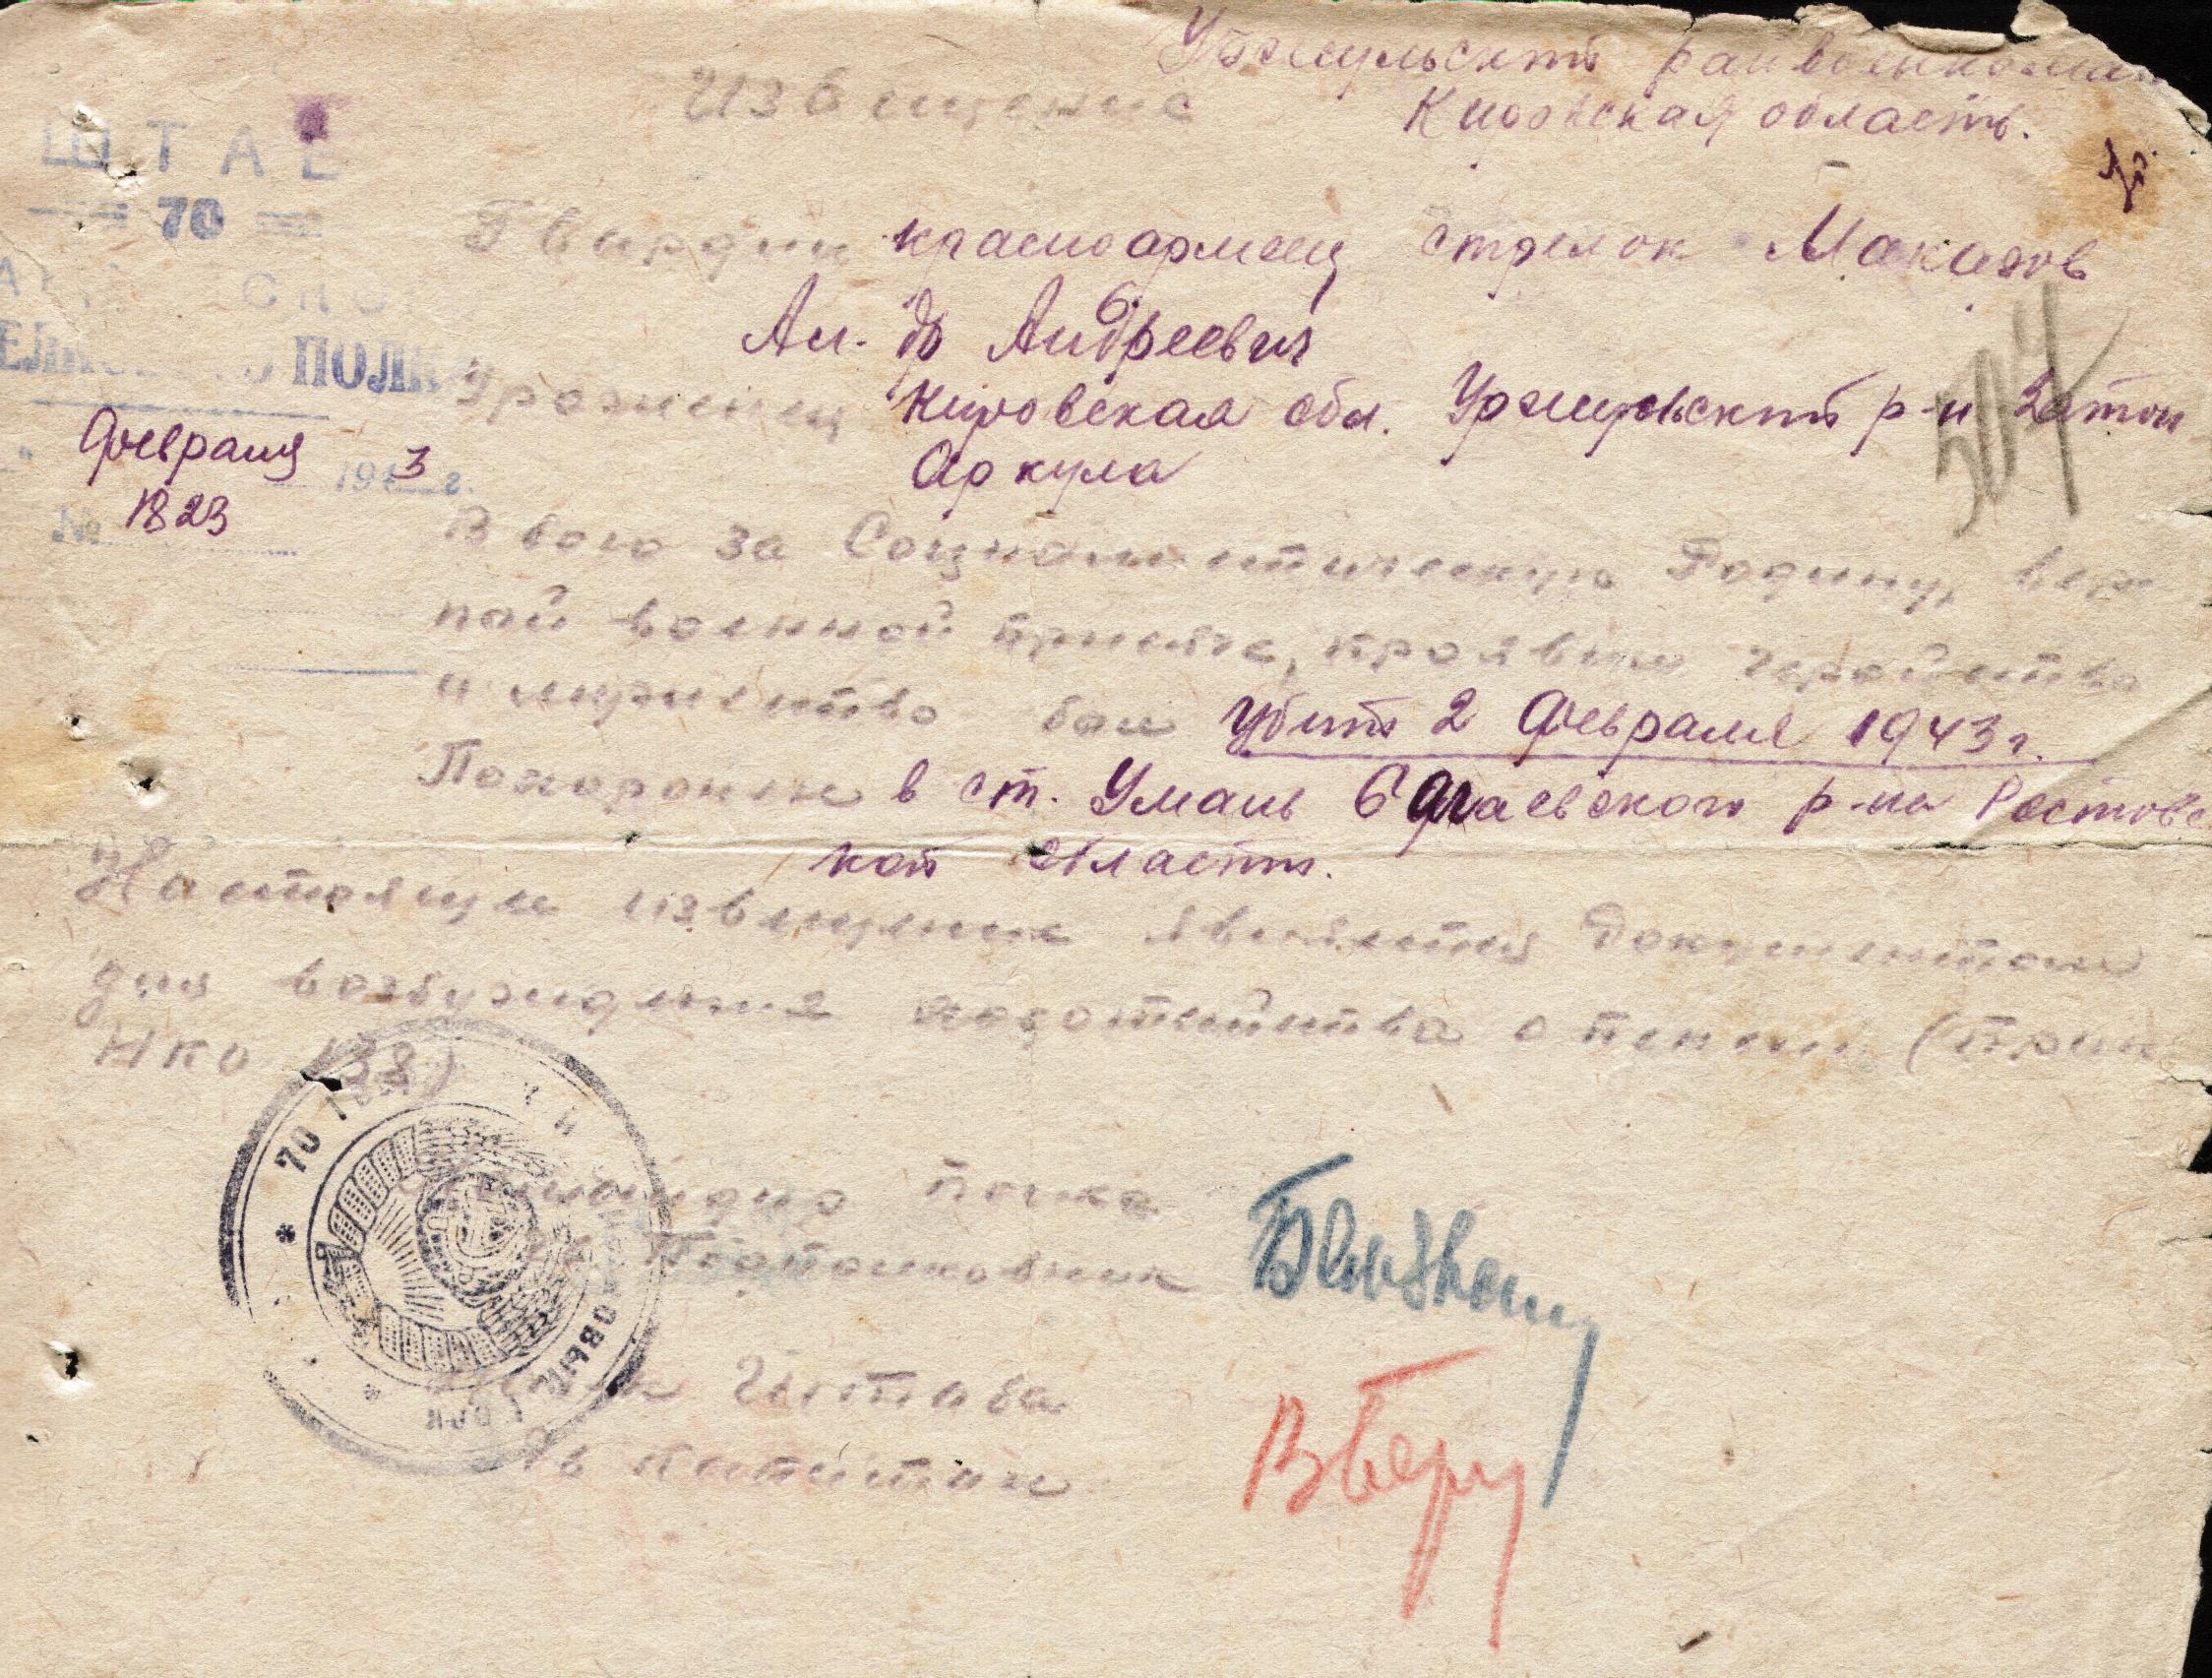 Уржумский райвоенкомат
Кировская область.
Извещение
ШТАБ
70
ПОЛКА
Февраля 1943 г.
№ 1823
Гвардии красноармеец стрелок Макаров
Ал-др Андреевич
Уроженец Кировская обл. Уржумский р-н Затон
Аркуль
504
В бою за Социалистическую Родину, вер
ной военной присяге, проявив геройство
и мужество был убит 2 Февраля 1943 г.
Похоронен в ст. Умань Ростовс
кой области.
Настоящее извещение является документом
для возбуждения ходатайства о пенсии (приказ
НКО 138)
Командир полка
Гв Подполковник
Штаба
Гв Капитан
70